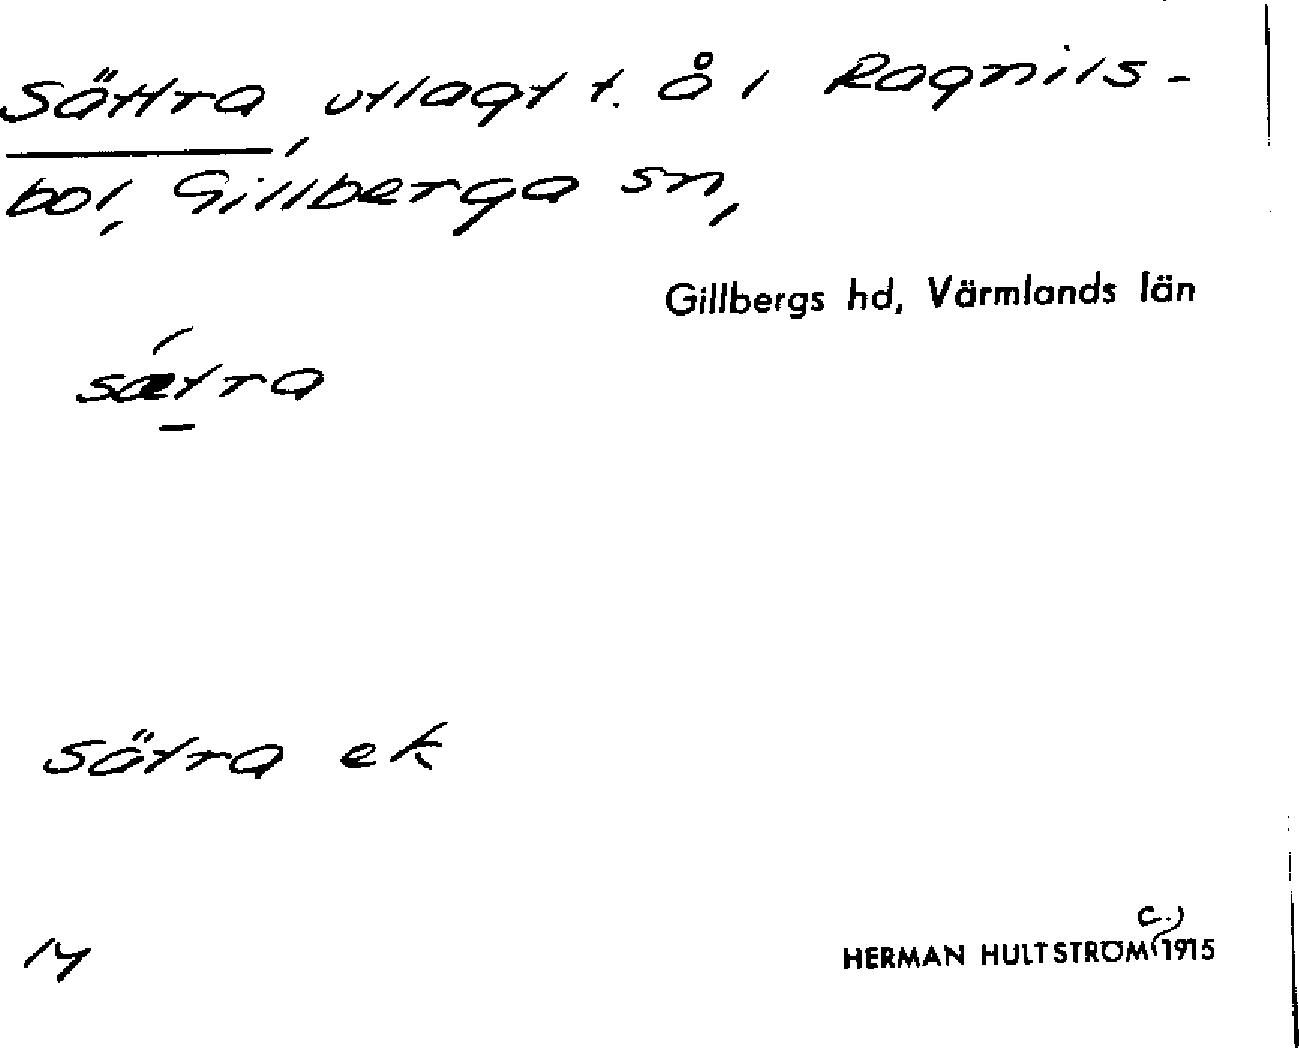 Sättra, utlagt t. Å i Ragnils-
bol, Gillberga sn,
Gillbergs hd, Värmlands län
sǽtra
Sätra ek
14
HERMAN HULTSTRÖM (c.) 1915